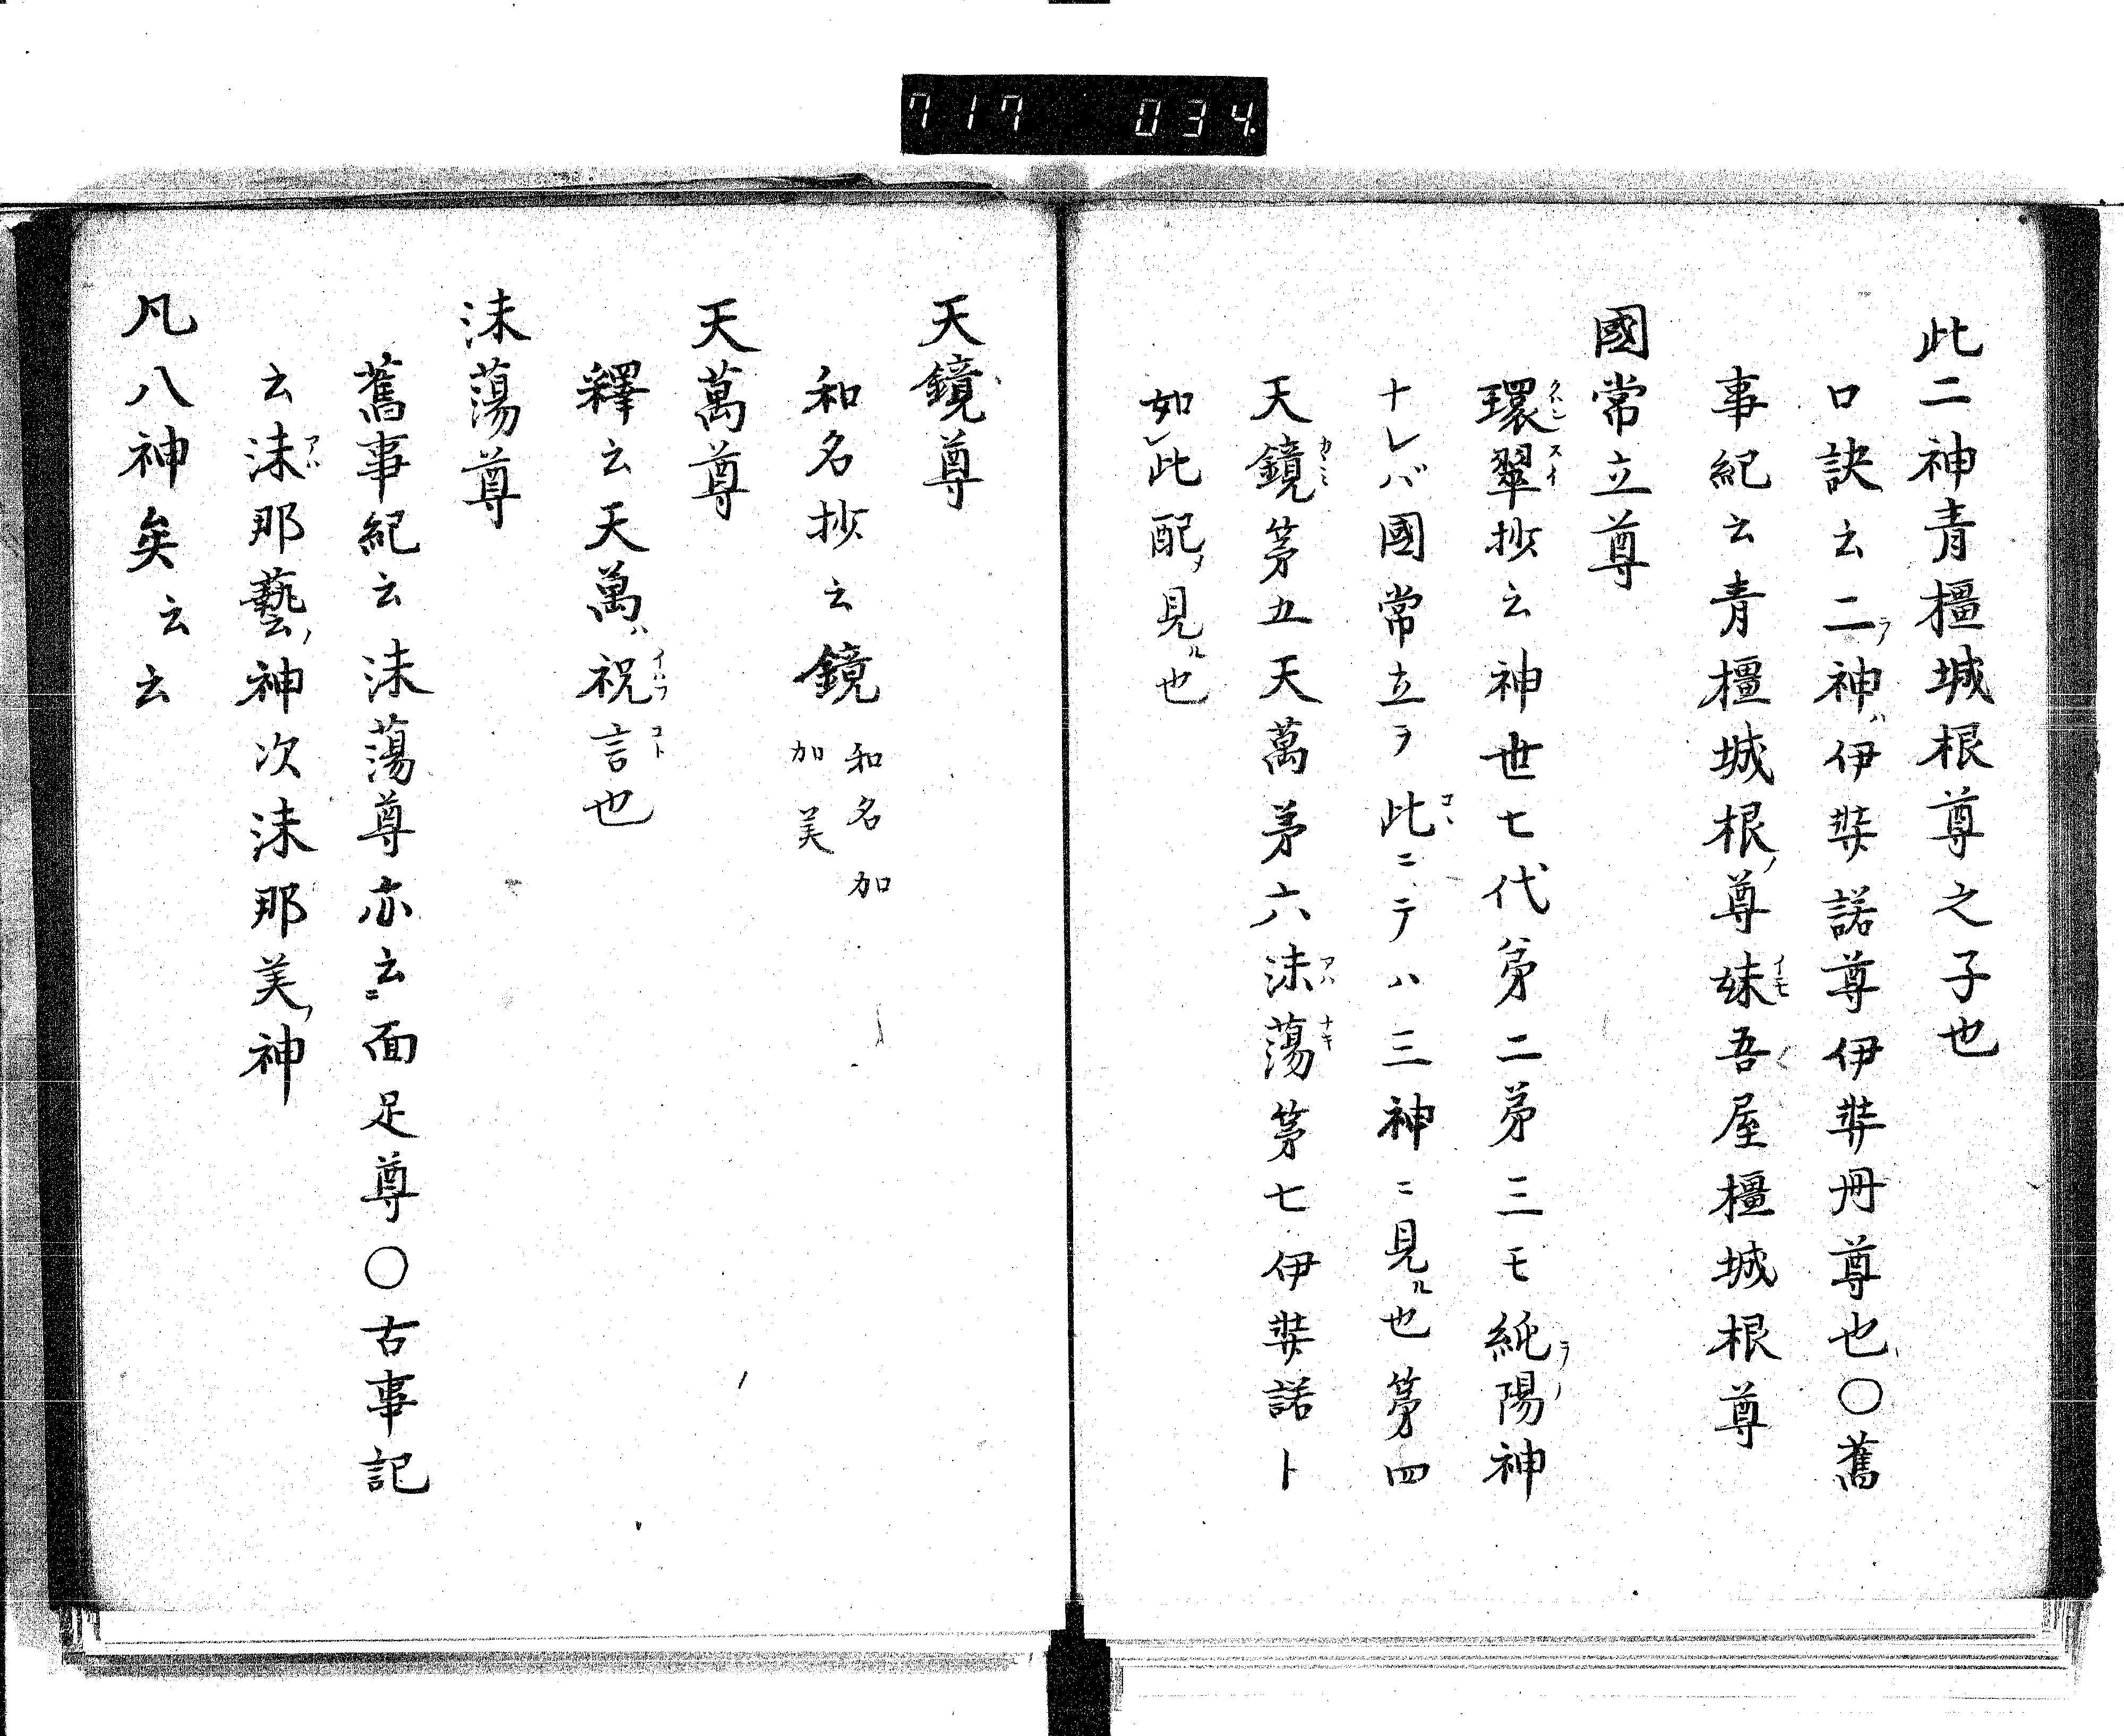 717 034
此二神青橿城根尊之子也
口訣云二神ハ伊弉諾尊伊弉冊尊也〇舊
事紀云青橿城根ノ尊妹吾屋橿城根尊
國常立尊
環翠抄云神世七代第二第三モ純陽神
ナレバ國常立ヲ此ニテハ三神ニ見ル也第四
天鏡第五天萬第六沫蕩第七伊弉諾ト
如レ此配メ見ル也
天鏡尊
和名抄云鏡 和名加加美
天萬尊
釋云天萬ハ祝言也
沫蕩尊
舊事紀云沫蕩尊亦云ニ面足尊〇古事記
云沫那藝ノ神次沫那美ノ神
凡八神矣云云